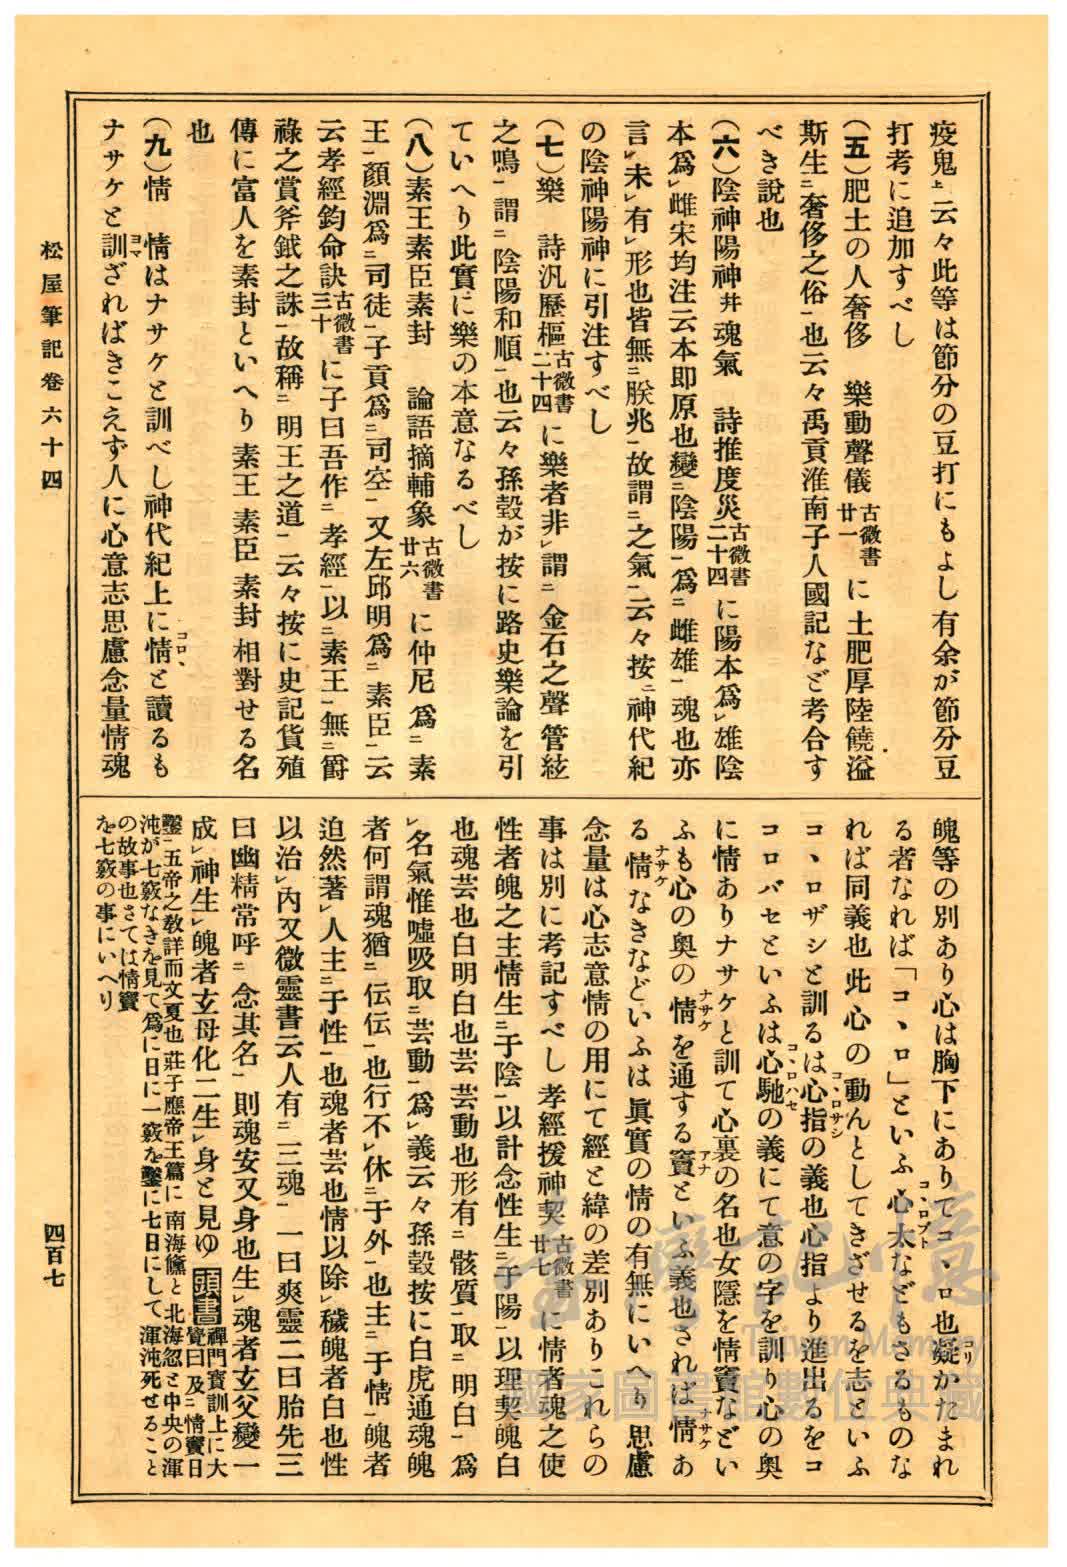 疫鬼上云々此等は節分の豆打にもよし有余が節分豆
打考に追加すべし
(五)肥土の人奢侈 樂動聲儀古微書廿一に土肥厚陸饒溢
斯生ニ奢侈之俗一也云々禹貢淮南子人國記など考合す
べき説也
(六)陰神陽神幷魂氣 詩推度災古微書二十四に陽本爲レ雄陰
本爲レ雌宋均注云本即原也變ニ陰陽一爲ニ雌雄一魂也亦
言レ未レ有レ形也皆無ニ朕兆一故謂ニ之氣一云々按ニ神代紀
の陰神陽神に引注すべし
(七)樂 詩汎歷樞古微書二十四に樂者非レ謂ニ金石之聲管絃
之鳴一謂ニ陰陽和順一也云々孫瑴が按に路史樂論を引
ていへり此實に樂の本意なるべし
(八)素王素臣素封 論語摘輔象古微書廿六に仲尼爲ニ素
王一顏淵爲ニ司徒一子貢爲ニ司空一又左邱明爲ニ素臣一云
云孝經鈎命訣古微書三十に子曰吾作ニ孝經一以ニ素王一無ニ爵
祿之賞斧鉞之誅一故稱ニ明王之道一云々按に史記貨殖
傳に富人を素封といへり素王素臣素封相對せる名
也
(九)情 情はナサケと訓べし神代紀上に情コロヽと讀るも
ナサケと訓ヨマざればきこえず人に心意志思慮念量情魂
魄等の別あり心は胸下にありてコヽロ也凝コリかたまれ
る者なれば「コヽロ」といふ心太コヽロブトなどもさるものな
れば同義也此心の動んとしてきざせるを志といふ
コヽロザシと訓るは心指コヽロサシの義也心指より進出るをコ
コロバセといふは心馳コヽロハセの義にて意の字を訓り心の奥
に情ありナサケと訓て心裏の名也女隱を情竇などい
ふも心の奥の情ナサケを通する竇アナといふ義也されば情ナサケあ
る情ナサケなきなどいふは眞實の情の有無にいへり思慮
念量は心志意情の用にて經と緯の差別ありこれらの
事は別に考記すべし孝經援神契古微書廿七に情者魂之使
性者魄之主情生ニ于陰一以計念性生ニ于陽一以理契魄白
也魂芸也白明白也芸芸動也形有ニ骸質一取ニ明白一爲
レ名氣惟噓吸取ニ芸動一爲レ義云々孫瑴按に白虎通魂魄
者何謂魂猶ニ伝伝一也行不レ休ニ于外一也主ニ于情一魄者
迫然著レ人主ニ于性一也魂者芸也情以除レ穢魄者白也性
以治レ內又微靈書云人有ニ三魂一一曰爽靈二曰胎先三
曰幽精常呼ニ念其名一則魂安又身也生レ魂者玄父變一
成レ神生レ魄者玄母化二生レ身と見ゆ頭書禪門寶訓上に大
覺曰及ニ情竇日
鑿ニ五帝之敎詳而文夏也莊子應帝王篇に南海儵と北海忽と中央の渾
沌が七竅なきを見て爲に日に一竅を鑿に七日にして渾沌死せること
の故事也さては情竇
を七竅の事にいへり
松屋筆記卷六十四
四百七
臺灣記憶
Taiwan Memory
國家圖書館數位典藏